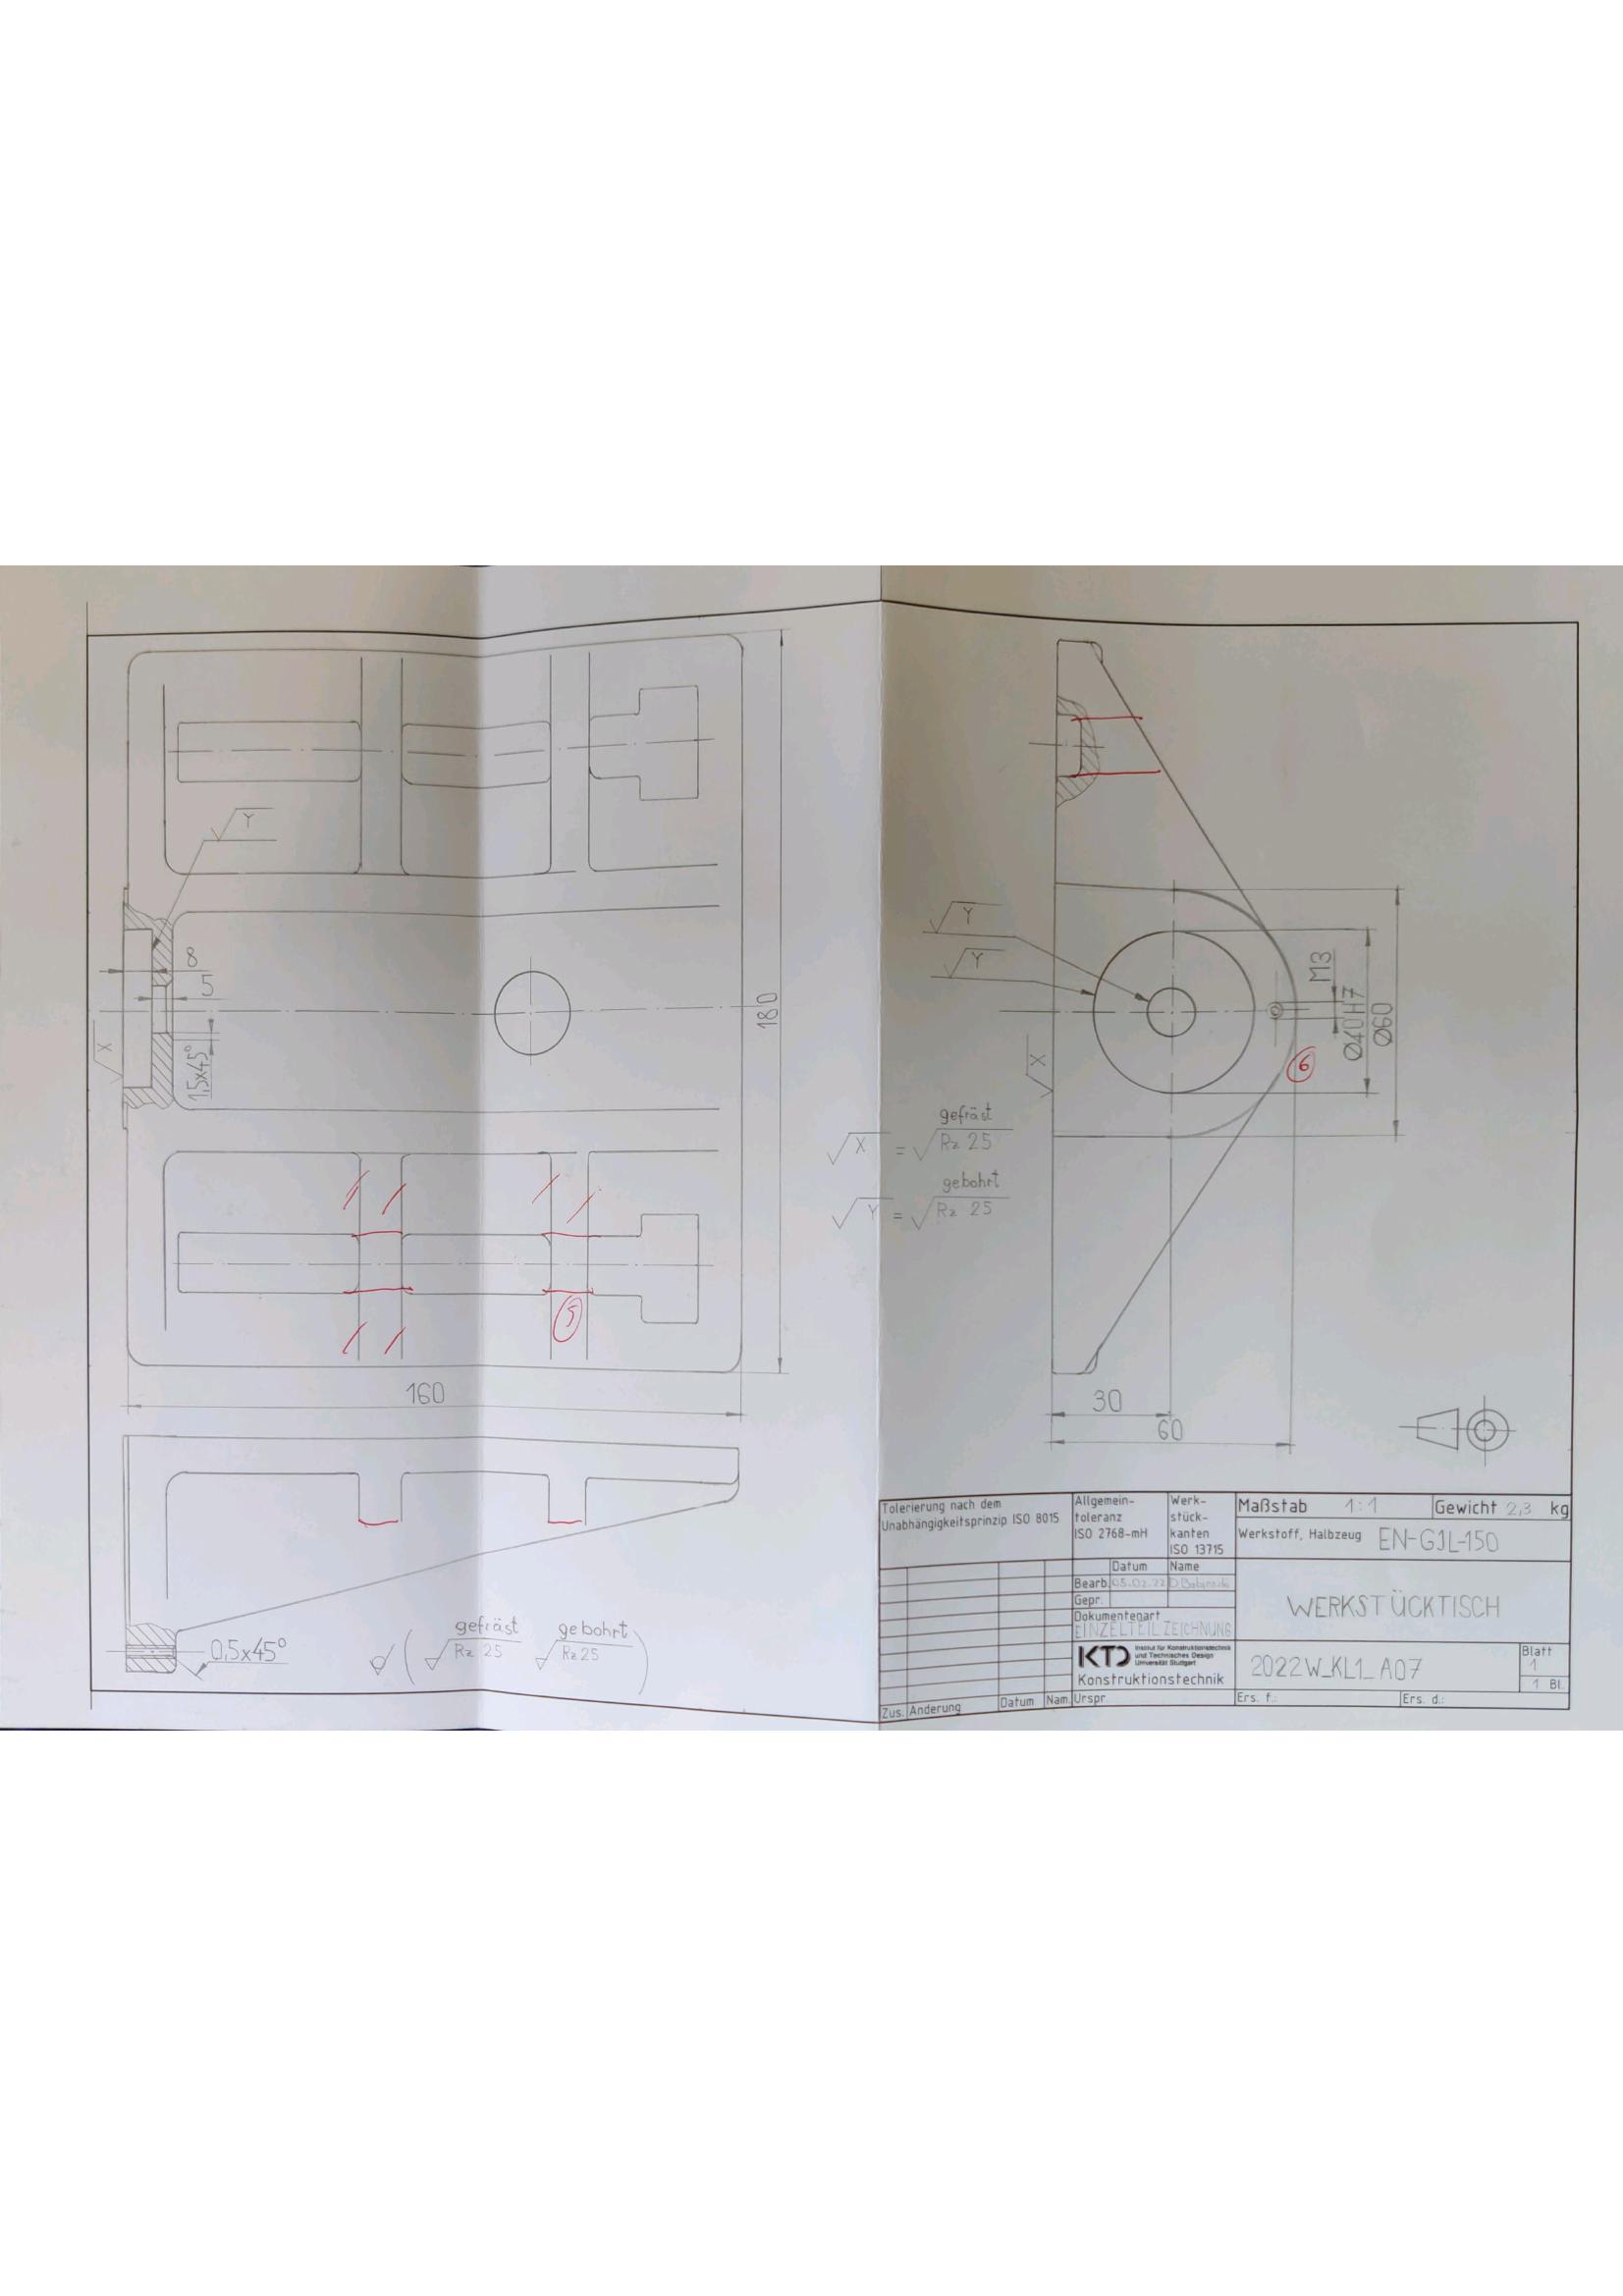 Y
8
5
1,5x45°
X
180
160
0,5x45°
gefräst
Rz 25
gebohrt
Rz 25
Y
Y
X
M3
Ø40H7
Ø60
6
5
X = gefräst
Rz 25
Y = gebohrt
Rz 25
30
60
Tolerierung nach dem
Unabhängigkeitsprinzip ISO 8015
Allgemein-
toleranz
ISO 2768-mH
Werk-
stück-
kanten
ISO 13715
Maßstab 1:1
Gewicht 2,3 kg
Werkstoff, Halbzeug EN-GJL-150
Datum Name
Bearb. 05.02.22
Gepr.
Dokumentenart
EINZELTEILZEICHNUNG
WERKSTÜCKTISCH
KTD Institut für Konstruktionstechnik
und Technisches Design
Universität Stuttgart
Konstruktionstechnik
2022W_KL1_A07
Blatt
1
1 Bl.
Zus. Änderung Datum Nam. Urspr.
Ers. f.: Ers. d.: